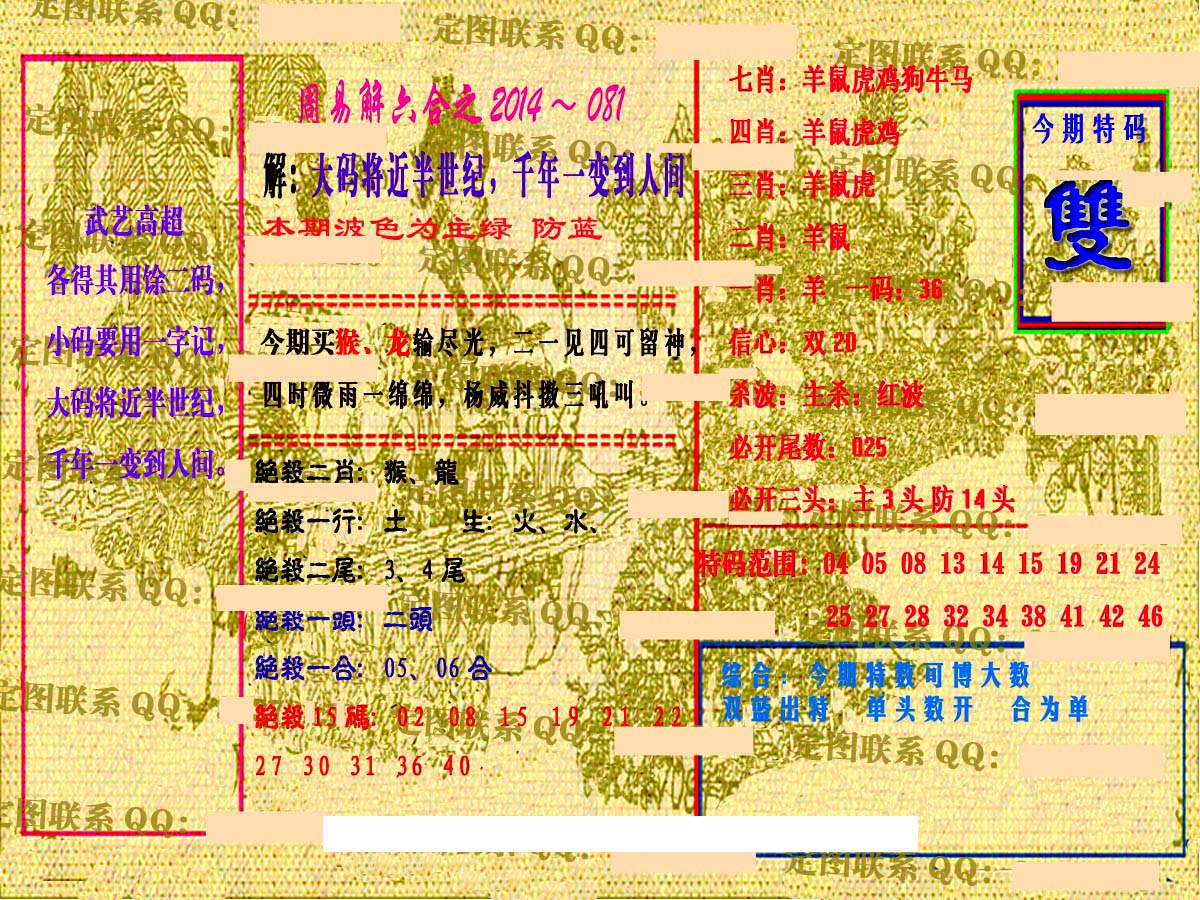 周易解六合之 2014～081
解：大码将近半世纪，千年一变到人间
本期波色为主绿 防蓝
武艺高超
各得其用馀二码，
小码要用一字记，
大码将近半世纪，
千年一变到人间。
今期买猴、龙输尽光，二一见四可留神，
四时微雨一绵绵，杨威抖擞三吼叫。
絕殺二肖：猴、龍
絕殺一行：土 生：火、水、
絕殺二尾：3、4尾
絕殺一頭：二頭
絕殺一合：05、06合
絕殺15碼：02 08 15 19 21 22
27 30 31 36 40
七肖：羊鼠虎鸡狗牛马
四肖：羊鼠虎鸡
三肖：羊鼠虎
二肖：羊鼠
一肖：羊 一码：36
信心：双20
杀波：主杀：红波
必开尾数：025
必开三头：主3头防14头
今期特码
雙
特码范围：04 05 08 13 14 15 19 21 24
25 27 28 32 34 38 41 42 46
综合：今期特数可博大数
双蓝出特 单头数开 合为单
定图联系 QQ：
定图联系 QQ：
定图联系 QQ：
定图联系 QQ：
定图联系 QQ：
定图联系 QQ：